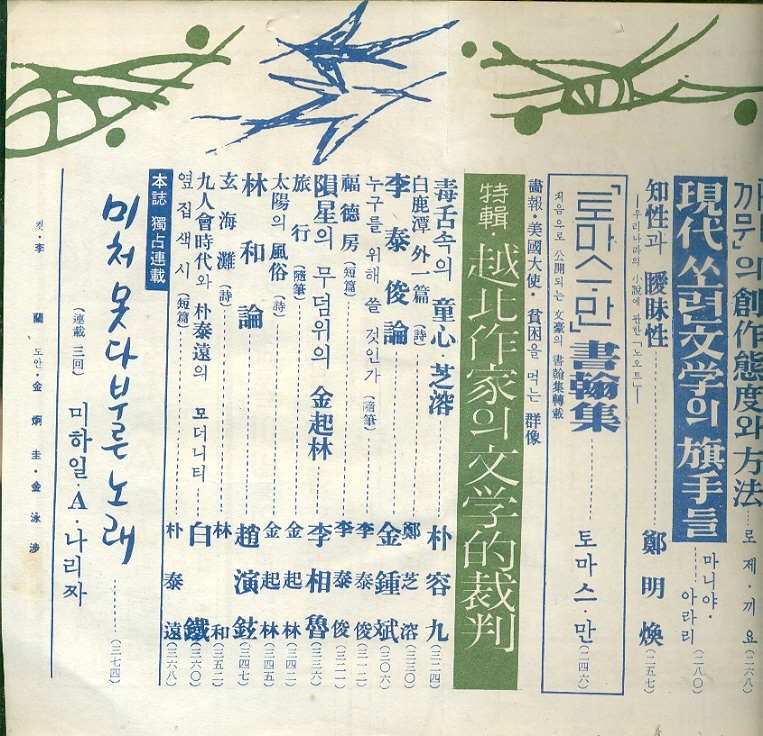 까뮈」의 創作態度와 方法……로제·끼요(二六八)
現代쏘련文学의 旗手들……마니야·아라리(二八〇)
知性과 曖昧性……鄭明煥(二五七)
—우리나라의 小說에 관한「노오트」—
「토마스·만」書翰集……토마스·만(二四六)
처음으로 公開되는 文豪의 書翰集轉載
畵報·美國大使·貧困을 먹는 群像
特輯·越北作家의 文学的裁判
毒舌속의 童心·芝溶……朴容九
白鹿潭 外一篇(詩)……鄭芝溶
李泰俊論……金鍾斌(三〇六)
누구를 위해 쓸 것인가(隨筆)……李泰俊(三一二)
福德房(短篇)……李泰俊(三二一)
隕星의 무덤위의 金起林……李相魯(三三六)
旅行(隨筆)……金起林(三四二)
太陽의 風俗(詩)……金起林(三四五)
林和論……趙演鉉(三四七)
玄海灘(詩)……林和(三五二)
九人會時代와 朴泰遠의 모더니티……白鐵(三六〇)
옆집색시(短篇)……朴泰遠(三六八)
本誌 獨占連載
미처 못다부른 노래……(三七四)
(連載 三回) 미하일·A·나리짜
컷·李蘭 도안·金炯圭·金泳涉